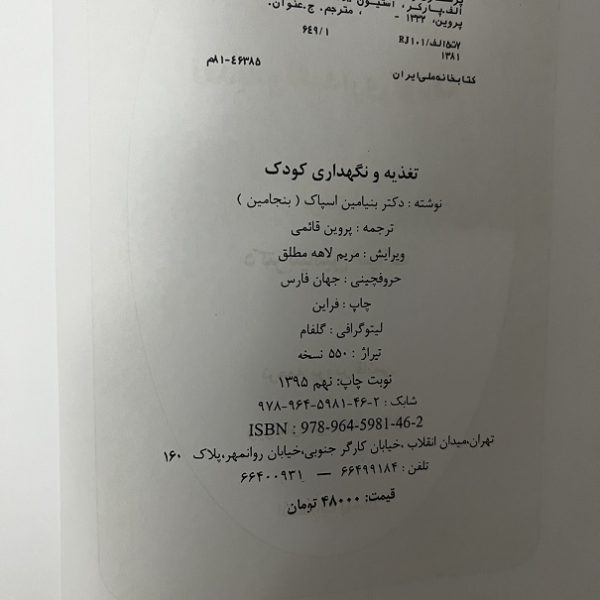 الف.پارکر، استیون
پروین، ۱۳۲۲ - ، مترجم. ج.عنوان.
۶۴۹/۱
RJ۱۰۱/الف۵ت۷
۱۳۸۱
۸۱-۴۶۳۸۵م
کتابخانه ملی ایران
تغذیه و نگهداری کودک
نوشته : دکتر بنیامین اسپاک ( بنجامین )
ترجمه : پروین قائمی
ویرایش : مریم لاهه مطلق
حروفچینی : جهان فارس
چاپ : فراین
لیتوگرافی : گلفام
تیراژ : ۵۵۰ نسخه
نوبت چاپ: نهم ۱۳۹۵
شابک : ۲-۴۶-۵۹۸۱-۹۶۴-۹۷۸
ISBN : 978-964-5981-46-2
تهران،میدان انقلاب ،خیابان کارگر جنوبی،خیابان روانمهر،پلاک ۱۶۰
تلفن : ۶۶۴۹۹۱۸۴ — ۶۶۴۰۰۹۳۱
قیمت: ۴۸۰۰۰ تومان